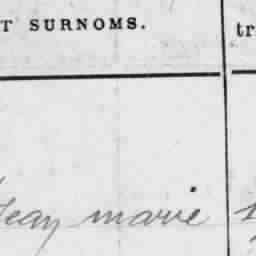 T SURNOMS.
tr
Jean marie